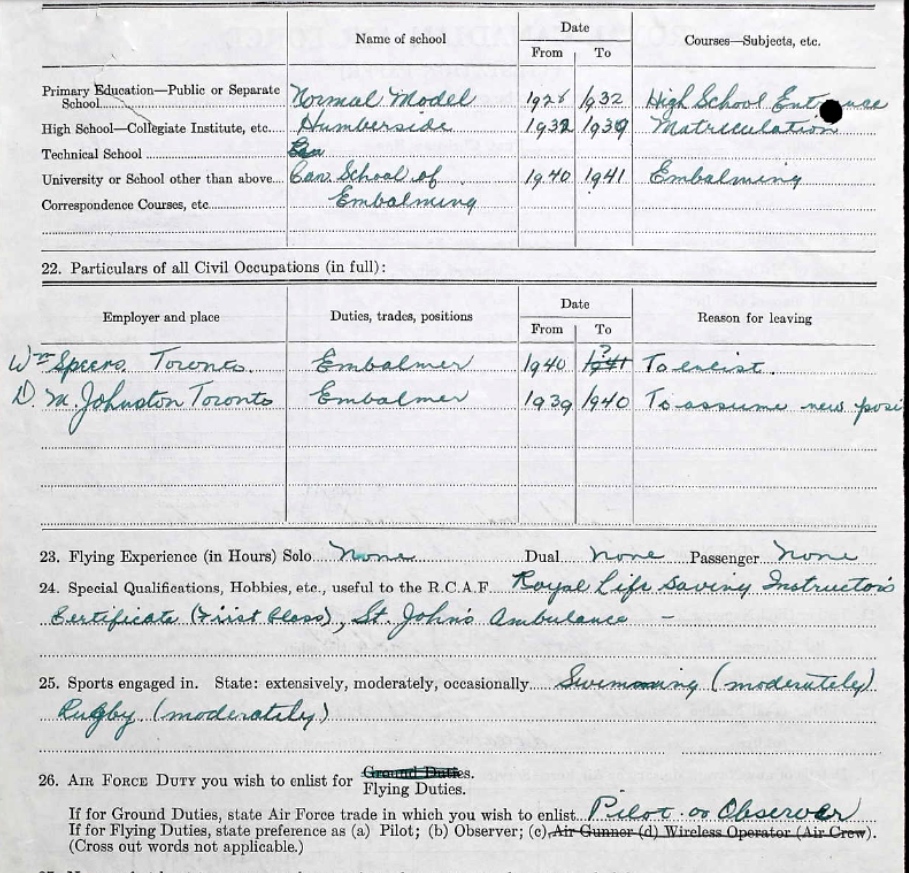 Name of school Date Courses—Subjects, etc.
From To
Primary Education—Public or Separate
School Normal Model 1926 1932 High School Entrance
High School—Collegiate Institute, etc. Humberside 1932 1939 Matriculation
Technical School Can
University or School other than above Can. School of 1940 1941 Embalming
Correspondence Courses, etc. Embalming
22. Particulars of all Civil Occupations (in full):
Employer and place Duties, trades, positions Date Reason for leaving
From To
?
Wm Speers Toronto. Embalmer 1940 1941 To enlist.
D. M. Johnston Toronto Embalmer 1939 1940 To assume new posi
23. Flying Experience (in Hours) Solo None Dual none Passenger None
24. Special Qualifications, Hobbies, etc., useful to the R.C.A.F. Royal Life Saving Instructor's
Certificate (First Class), St. John's Ambulance —
25. Sports engaged in. State: extensively, moderately, occasionally Swimming (moderately)
Rugby (moderately)
26. AIR FORCE DUTY you wish to enlist for Ground Duties.
Flying Duties.
If for Ground Duties, state Air Force trade in which you wish to enlist Pilot or Observer
If for Flying Duties, state preference as (a) Pilot; (b) Observer; (c) Air Gunner (d) Wireless Operator (Air Crew).
(Cross out words not applicable.)